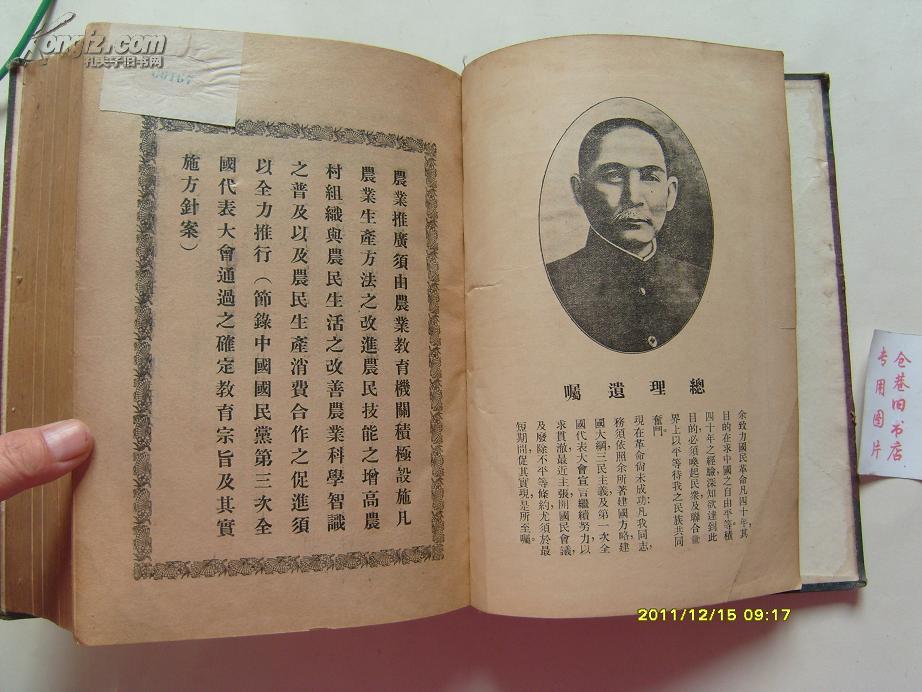 Kongfz.com
孔夫子旧书网
00167
總理遺囑
余致力國民革命凡四十年其
目的在求中國之自由平等積
四十年之經驗深知欲達到此
目的必須喚起民衆及聯合世
界上以平等待我之民族共同
奮鬥。
現在革命尚未成功凡我同志，
務須依照余所著建國方略建
國大綱三民主義及第一次全
國代表大會宣言繼續努力以
求貫澈最近主張開國民會議
及廢除不平等條約尤須於最
短期間促其實現是所至囑。
農業推廣須由農業教育機關積極設施凡
農業生產方法之改進農民技能之增高農
村組織與農民生活之改善農業科學智識
之普及以及農民生產消費合作之促進須
以全力推行（節錄中國國民黨第三次全
國代表大會通過之確定教育宗旨及其實
施方針案）
仓巷旧书店
专用图片
2011/12/15 09:17